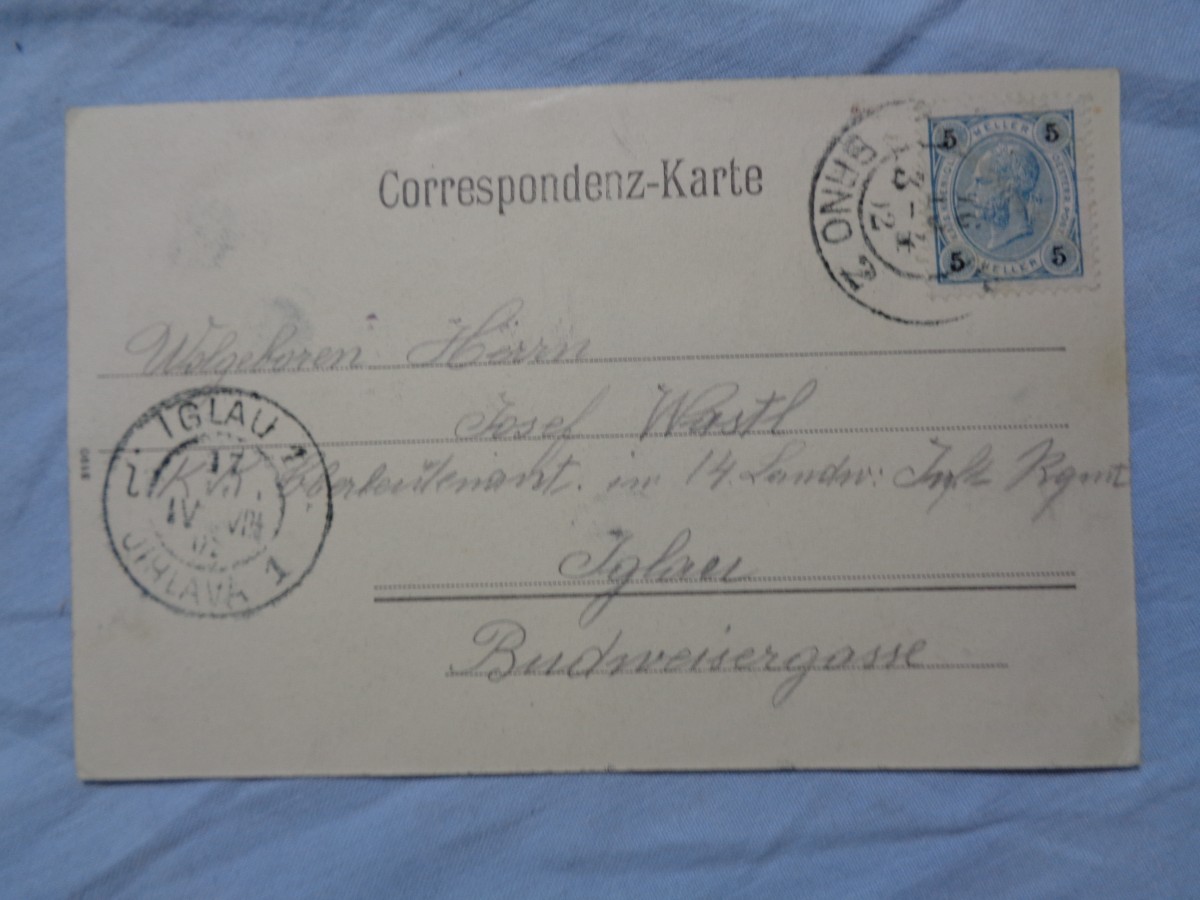 Correspondenz-Karte
BRNO 2
3
02
5 HELLER 5
5 HELLER 5
Wolgeboren Herrn
Josef Wastl
K. u. K. Oberleutenant. in 14. Landw: Inft Rgmt
Iglau
Budweisergasse
IGLAU 1
17
IV VIII
JIHLAVA 1